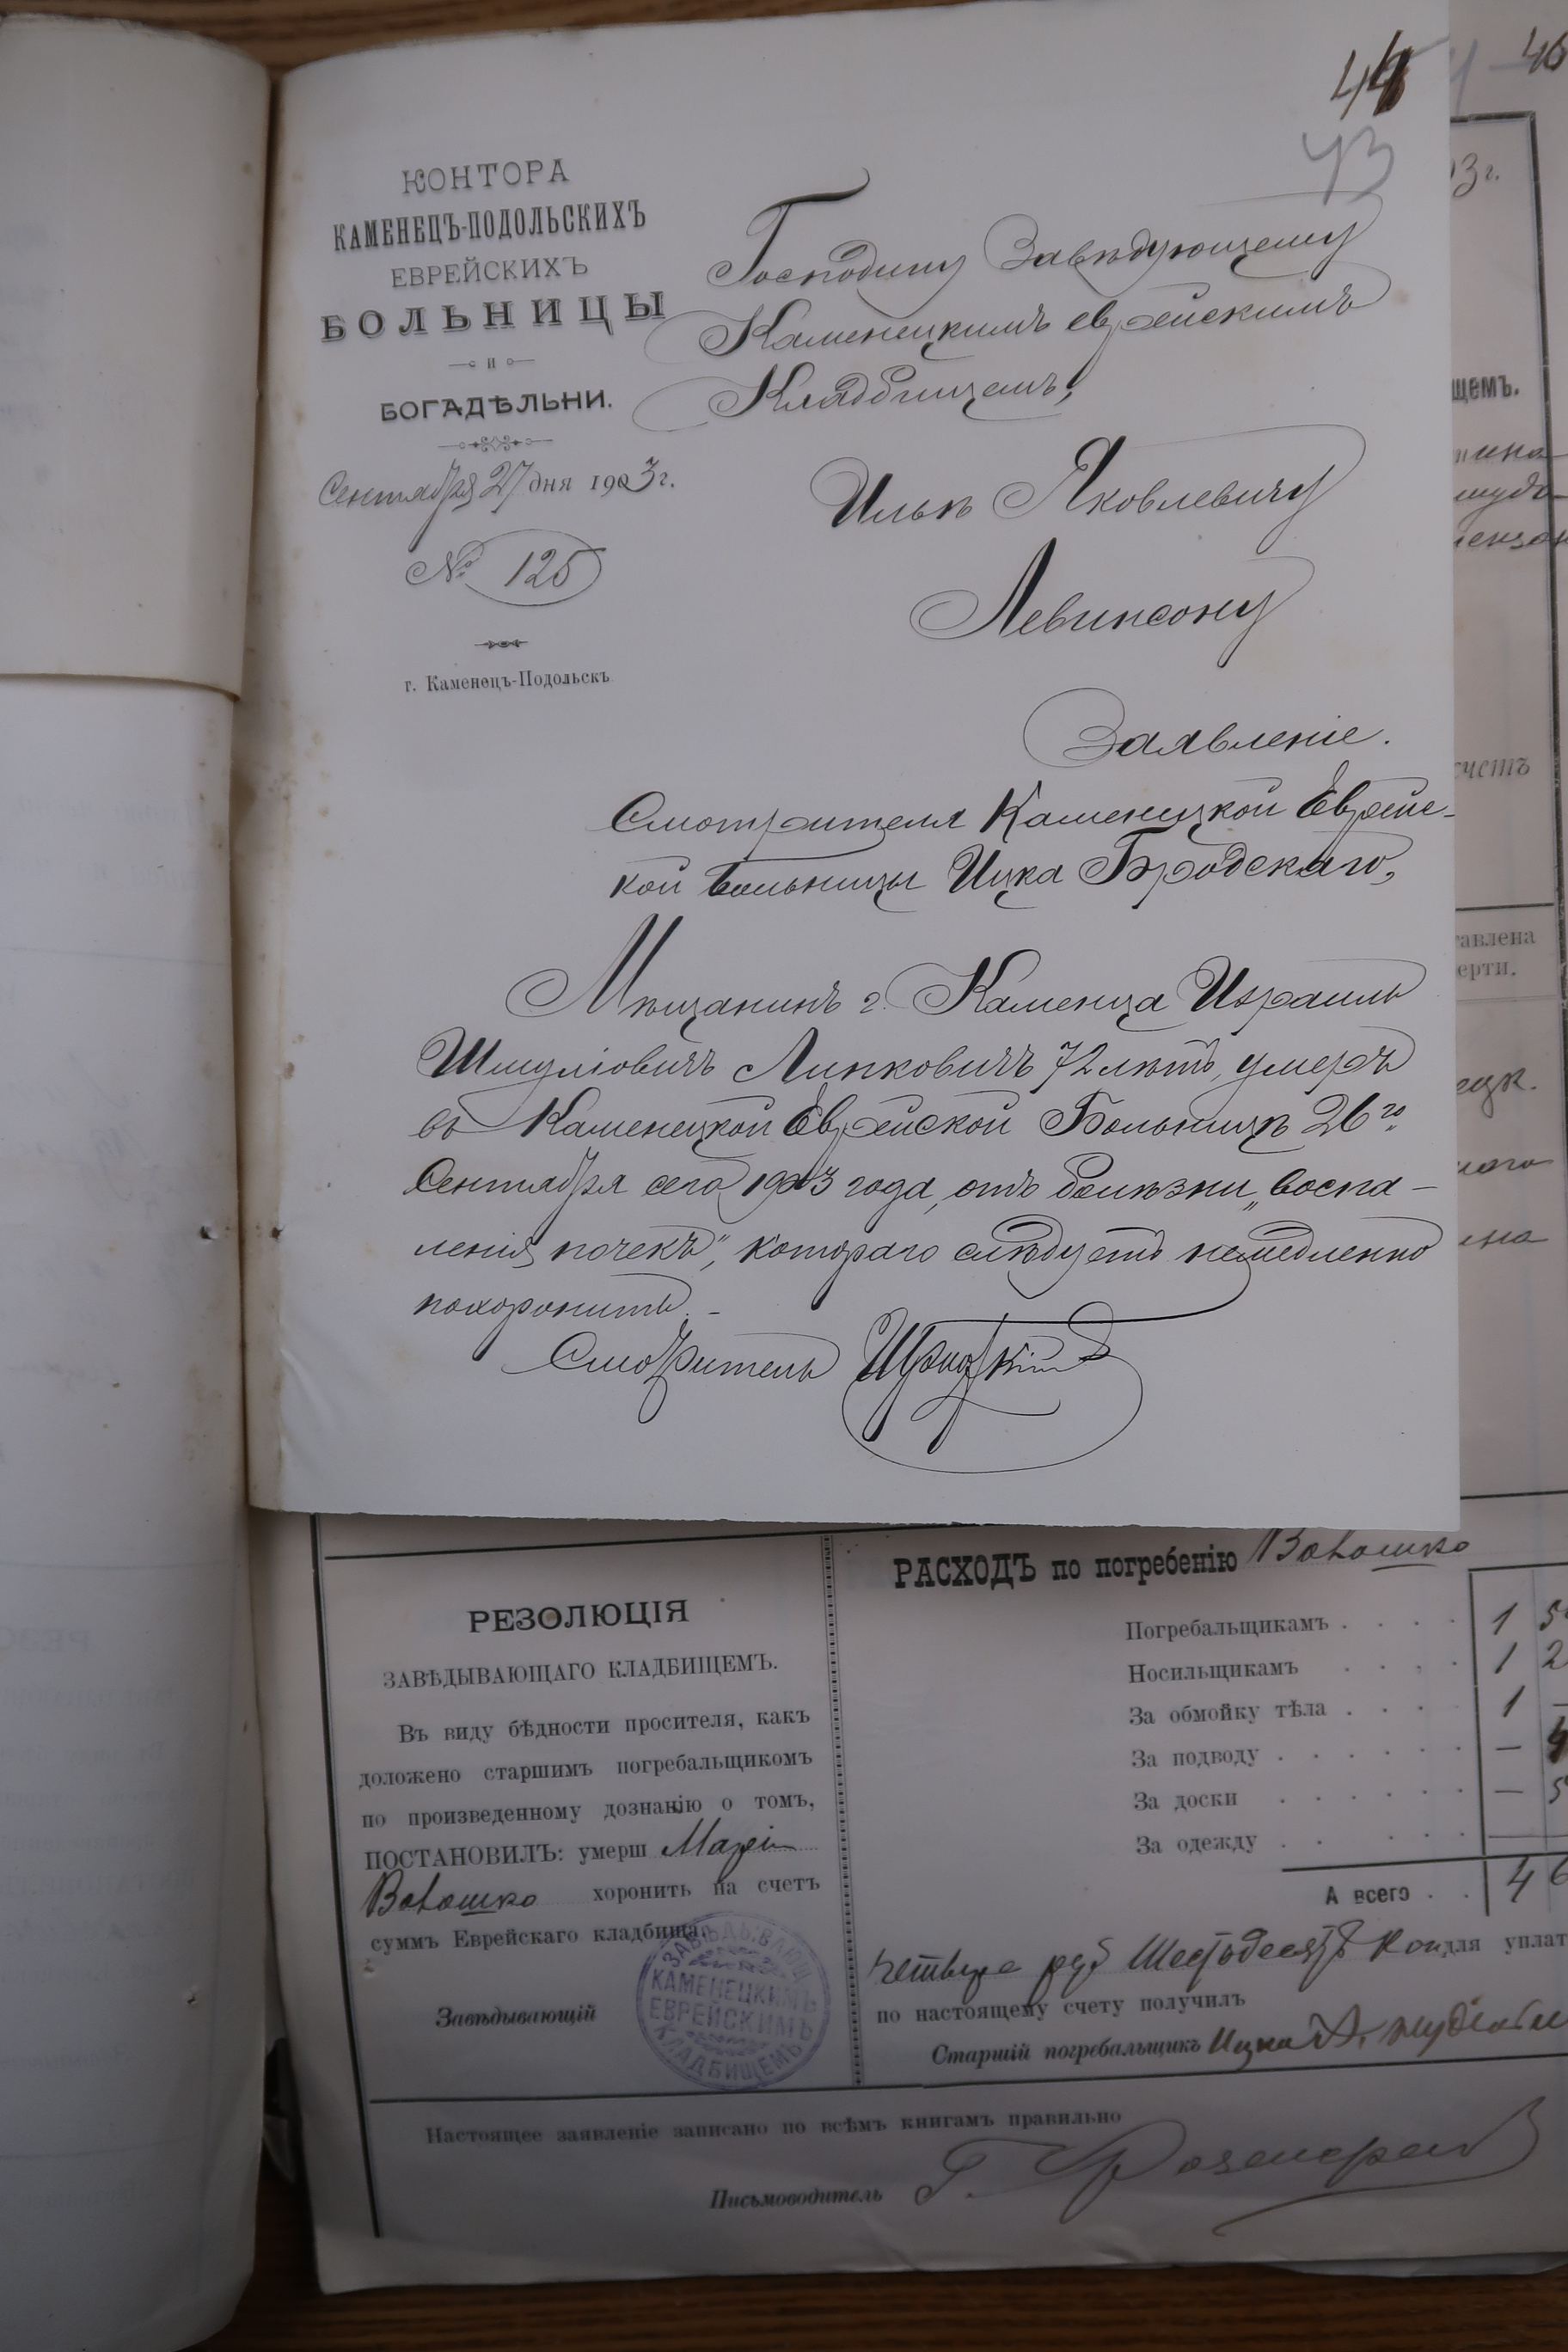 44
43
КОНТОРА
КАМЕНЕЦЪ-ПОДОЛЬСКИХЪ
ЕВРЕЙСКИХЪ
БОЛЬНИЦЫ
и
БОГАДѢЛЬНИ.
Сентября 27 дня 1903 г.
№ 125
г. Каменецъ-Подольскъ
Господину Завѣдующему
Каменецкимъ еврейскимъ
Кладбищемъ,
Ильѣ Яковлевичу
Левинсону
Заявленіе.
Смотрителя Каменецкой Еврейс-
кой больницы Ицка Бродскаго,
Мѣщанинъ г. Каменца Израиль
Шмуліовичъ Линковичъ 72 лѣтъ, умеръ
въ Каменецкой Еврейской Больницѣ 26го
Сентября сего 1903 года, отъ болѣзни „воспа-
ленія почекъ", котораго слѣдуетъ немедленно
похоронить. -
Смотритель
46
3 г.
щемъ.
счетъ
тавлена
ерти.
ецк.
РЕЗОЛЮЦІЯ
ЗАВѢДЫВАЮЩАГО КЛАДБИЩЕМЪ.
Въ виду бѣдности просителя, какъ
доложено старшимъ погребальщикомъ
по произведенному дознанію о томъ,
ПОСТАНОВИЛЪ: умерш
хоронить на счетъ
суммъ Еврейскаго кладбища.
Завѣдывающій
ЗАВѢДЫВАЮЩ
КАМЕНЕЦКИМЪ
ЕВРЕЙСКИМЪ
КЛАДБИЩЕМЪ
РАСХОДЪ по погребенію
Погребальщикамъ . . . . 1 5
Носильщикамъ . . . . 1 2
За обмойку тѣла . . . . 1 —
За подводу . . . . . . — 4
За доски . . . . . . — 5
За одежду . . . . . . —
А всего . . 4 6
четыре руб Шестьдесятъ коп для уплат
по настоящему счету получилъ
Старшій погребальщикъ Ицка
Настоящее заявленіе записано по всѣмъ книгамъ правильно
Письмоводитель Г.